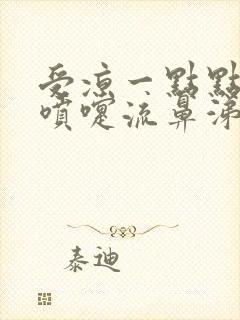 受凉一點點
噴嚏流鼻涕
泰迪